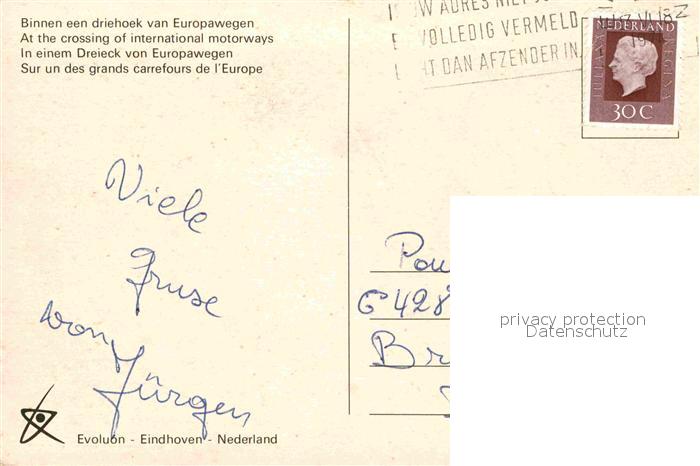 Binnen een driehoek van Europawegen
At the crossing of international motorways
In einem Dreieck von Europawegen
Sur un des grands carrefours de l'Europe
VOLLEDIG VERMELD
DAN AFZENDER IN
NEDERLAND
JULIANA REGINA
30 C
Viele
Gruse
von
Jürgen
Pou
G 428
Br
privacy protection
Datenschutz
Evoluon - Eindhoven - Nederland